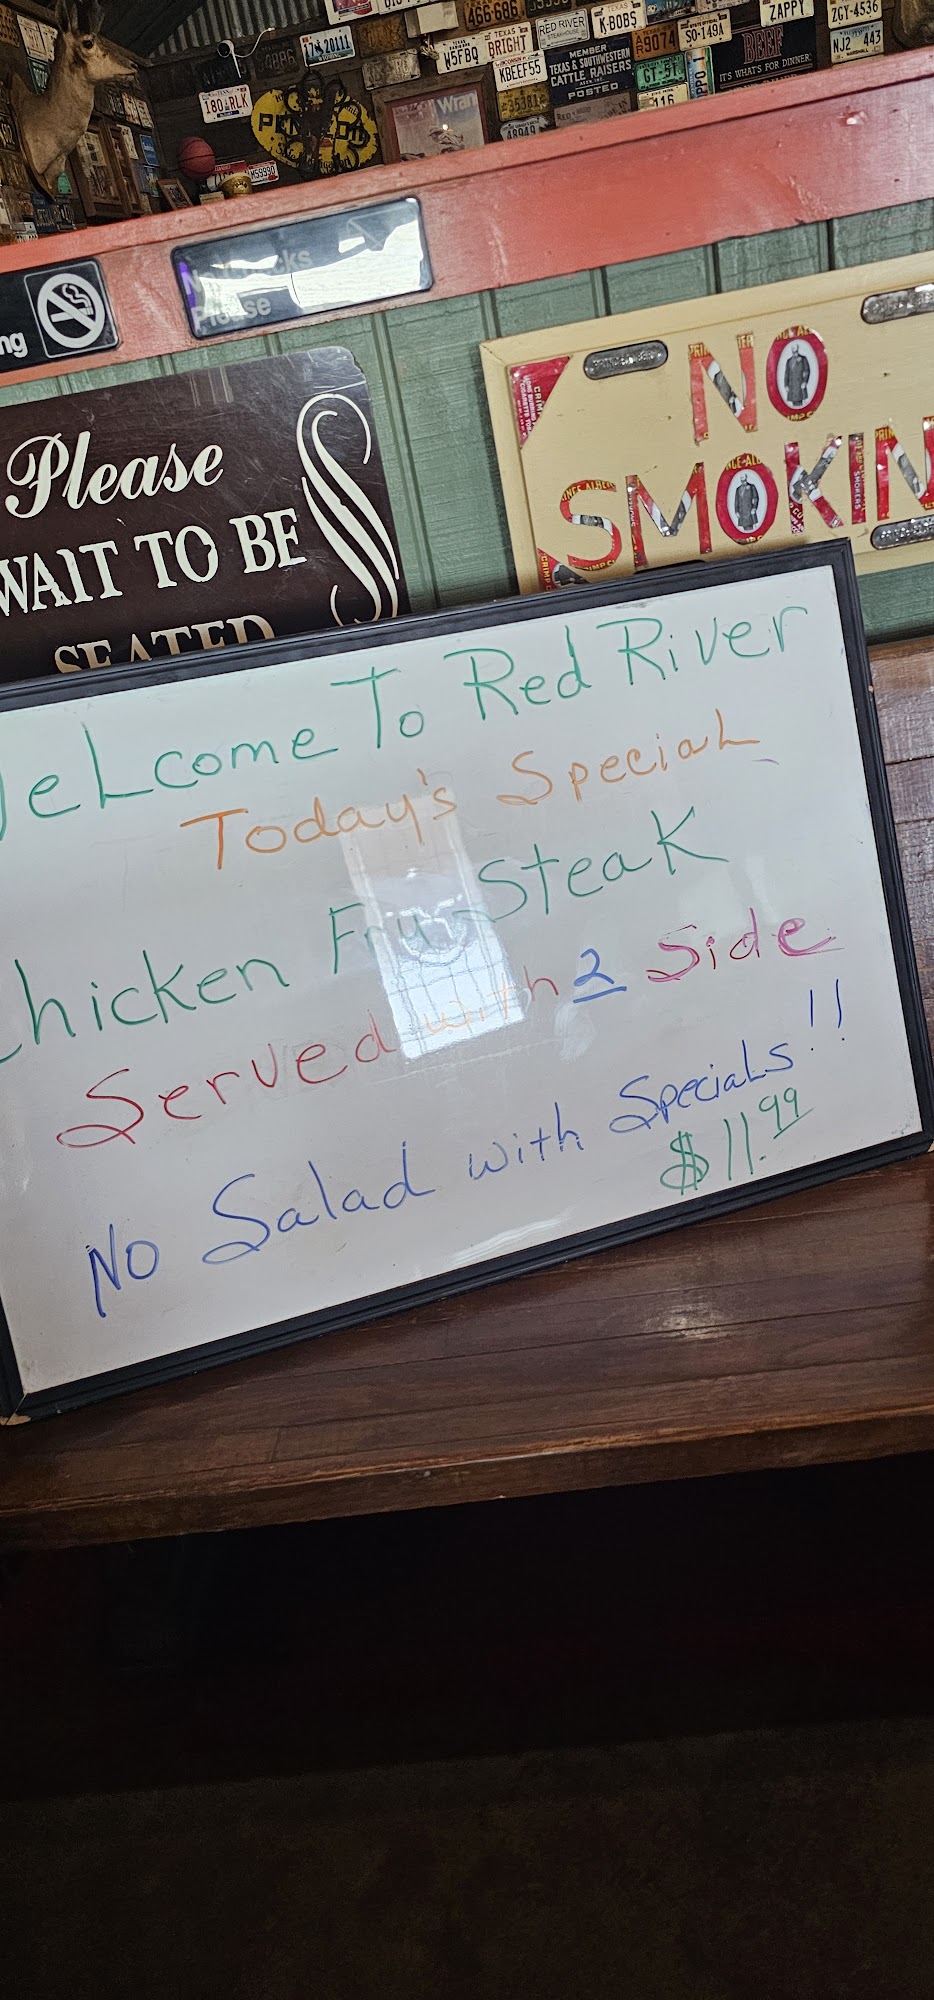 466·686
TEXAS
BRIGHT
RED RIVER
STEAKHOUSE
K·BOB5
ZAPPY
ZGY-4536
NJ2 443
17★20111
W5FBQ
KBEEF55
MEMBER
TEXAS & SOUTHWESTERN
CATTLE RAISERS
POSTED
9074
SO·149A
BEEF
IT'S WHAT'S FOR DINNER.
180★RLK
Wran
116
48949
M59990
ng
Please
Please
WAIT TO BE
SEATED
NO
SMOKIN
WeLcome To Red River
Today's SpeciaL
Chicken Fry Steak
Served with 2 Side
No Salad with SpeciaLs!!
$11.99